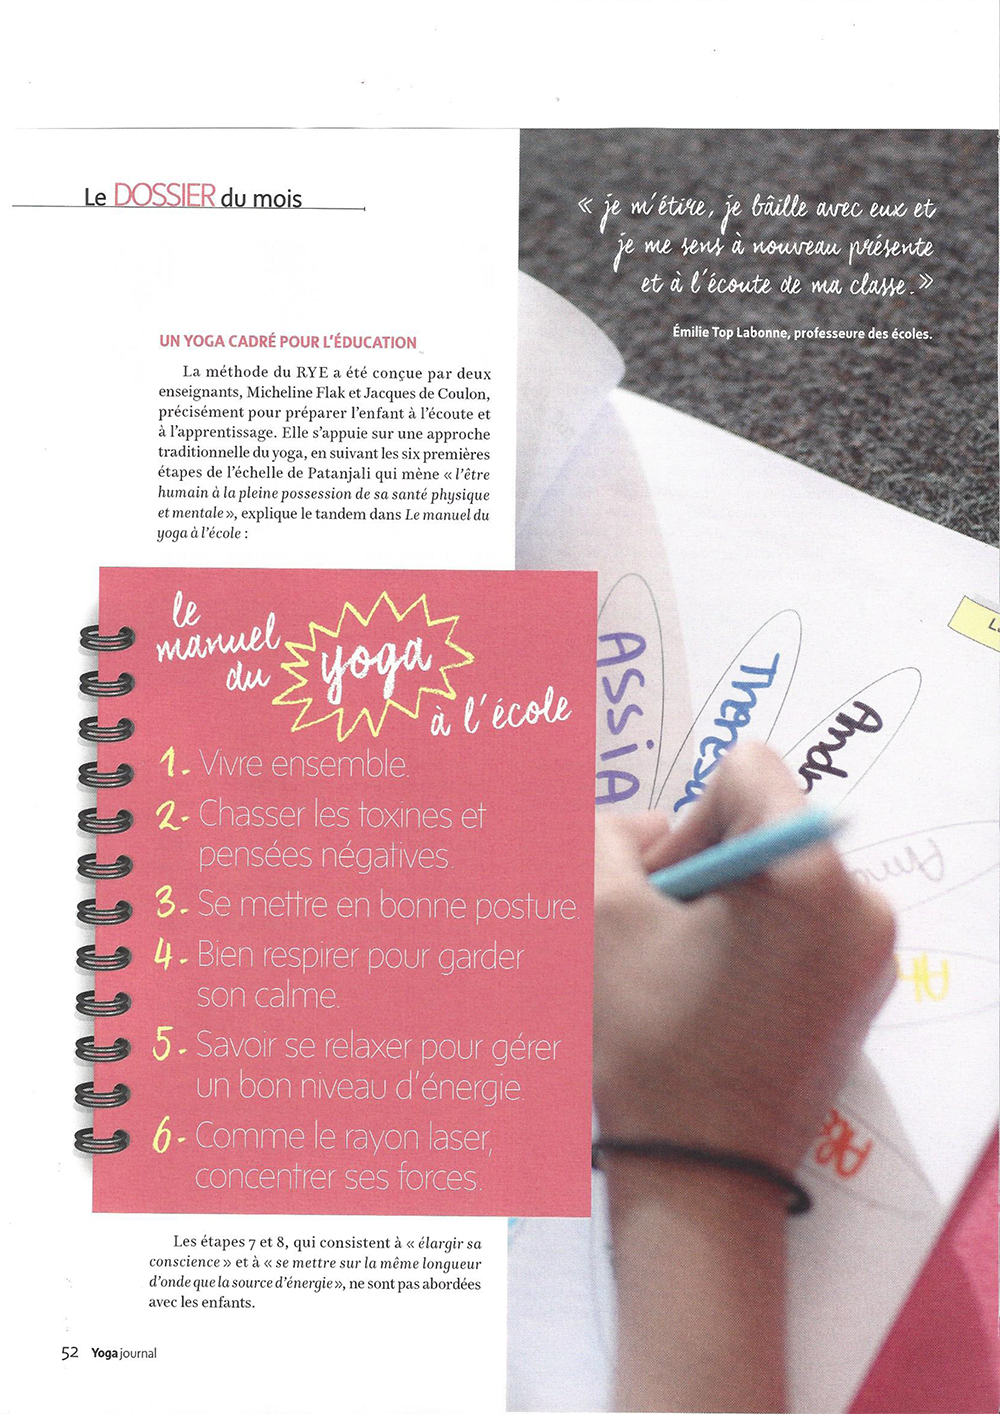 Le DOSSIER du mois
« je m'étire, je bâille avec eux et
je me sens à nouveau présente
et à l'écoute de ma classe.»
Émilie Top Labonne, professeure des écoles.
UN YOGA CADRÉ POUR L'ÉDUCATION
La méthode du RYE a été conçue par deux
enseignants, Micheline Flak et Jacques de Coulon,
précisément pour préparer l'enfant à l'écoute et
à l'apprentissage. Elle s'appuie sur une approche
traditionnelle du yoga, en suivant les six premières
étapes de l'échelle de Patanjali qui mène « l'être
humain à la pleine possession de sa santé physique
et mentale », explique le tandem dans Le manuel du
yoga à l'école :
le
manuel
du
yoga
à l'école
1. Vivre ensemble.
2- Chasser les toxines et
pensées négatives.
3. Se mettre en bonne posture.
4- Bien respirer pour garder
son calme.
5- Savoir se relaxer pour gérer
un bon niveau d'énergie.
6- Comme le rayon laser,
concentrer ses forces.
ASSIA
Theresa
Les étapes 7 et 8, qui consistent à « élargir sa
conscience » et à « se mettre sur la même longueur
d'onde que la source d'énergie », ne sont pas abordées
avec les enfants.
52 Yogajournal